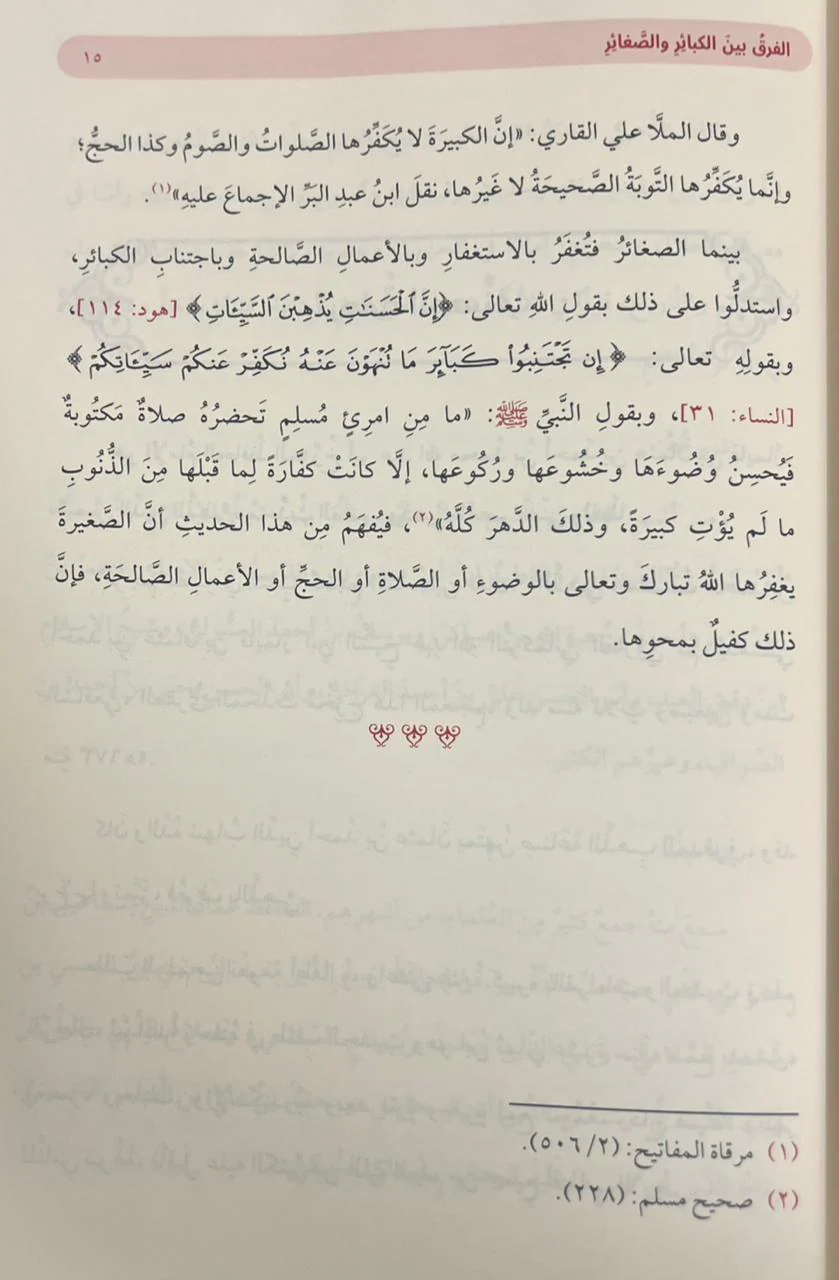 الفرقُ بينَ الكبائِرِ والصَّغائِرِ
١٥
وقال الملَّا علي القاري: «إنَّ الكبيرَةَ لا يُكَفِّرُها الصَّلواتُ والصَّومُ وكذا الحجُّ؛
وإنَّما يُكَفِّرُها التَّوبَةُ الصَّحيحَةُ لا غَيرُها، نقلَ ابنُ عبدِ البَرِّ الإجماعَ عليهِ»(١).
بينما الصغائرُ فتُغفَرُ بالاستغفارِ وبالأعمالِ الصَّالحةِ وباجتنابِ الكبائرِ،
واستدلُّوا على ذلك بقولِ اللهِ تعالى: ﴿إِنَّ ٱلْحَسَنَٰتِ يُذْهِبْنَ ٱلسَّيِّـَٔاتِ﴾ [هود: ١١٤]،
وبقولِهِ تعالى: ﴿إِن تَجْتَنِبُوا۟ كَبَآئِرَ مَا تُنْهَوْنَ عَنْهُ نُكَفِّرْ عَنكُمْ سَيِّـَٔاتِكُمْ﴾
[النساء: ٣١]، وبقولِ النَّبيِّ ﷺ: «ما مِنِ امرِئٍ مُسلِمٍ تَحضرُهُ صلاةٌ مَكتُوبةٌ
فَيُحسِنُ وُضُوءَهَا وخُشُوعَها ورُكُوعَها، إلَّا كانَتْ كفَّارَةً لِما قَبْلَها مِنَ الذُّنُوبِ
ما لَم يُؤْتِ كبيرَةً، وذلكَ الدَّهرَ كُلَّهُ»(٢)، فيُفهَمُ مِن هذا الحديثِ أنَّ الصَّغيرةَ
يغفِرُها اللهُ تباركَ وتعالى بالوضوءِ أو الصَّلاةِ أو الحجِّ أو الأعمالِ الصَّالحَةِ، فإنَّ
ذلك كفيلٌ بمحوِها.
(١) مرقاة المفاتيح: (٢/ ٥٠٦).
(٢) صحيح مسلم: (٢٢٨).